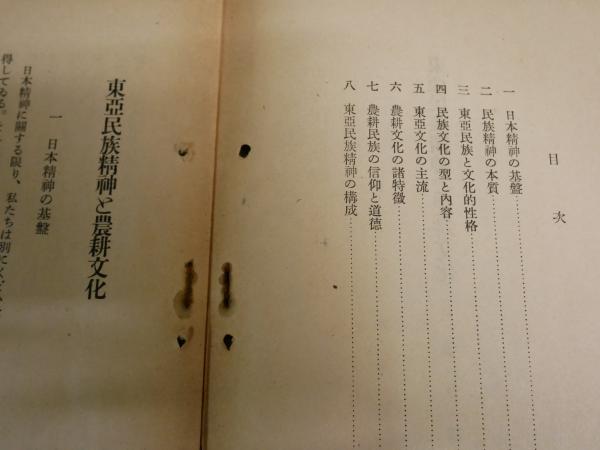 目次
一 日本精神の基盤
二 民族精神の本質
三 東亞民族と文化的性格
四 民族文化の型と內容
五 東亞文化の主流
六 農耕文化の諸特徵
七 農耕民族の信仰と道德
八 東亞民族精神の構成
東亞民族精神と農耕文化
一 日本精神の基盤
日本精神に關する限り、私たちは別に
得してゐる。